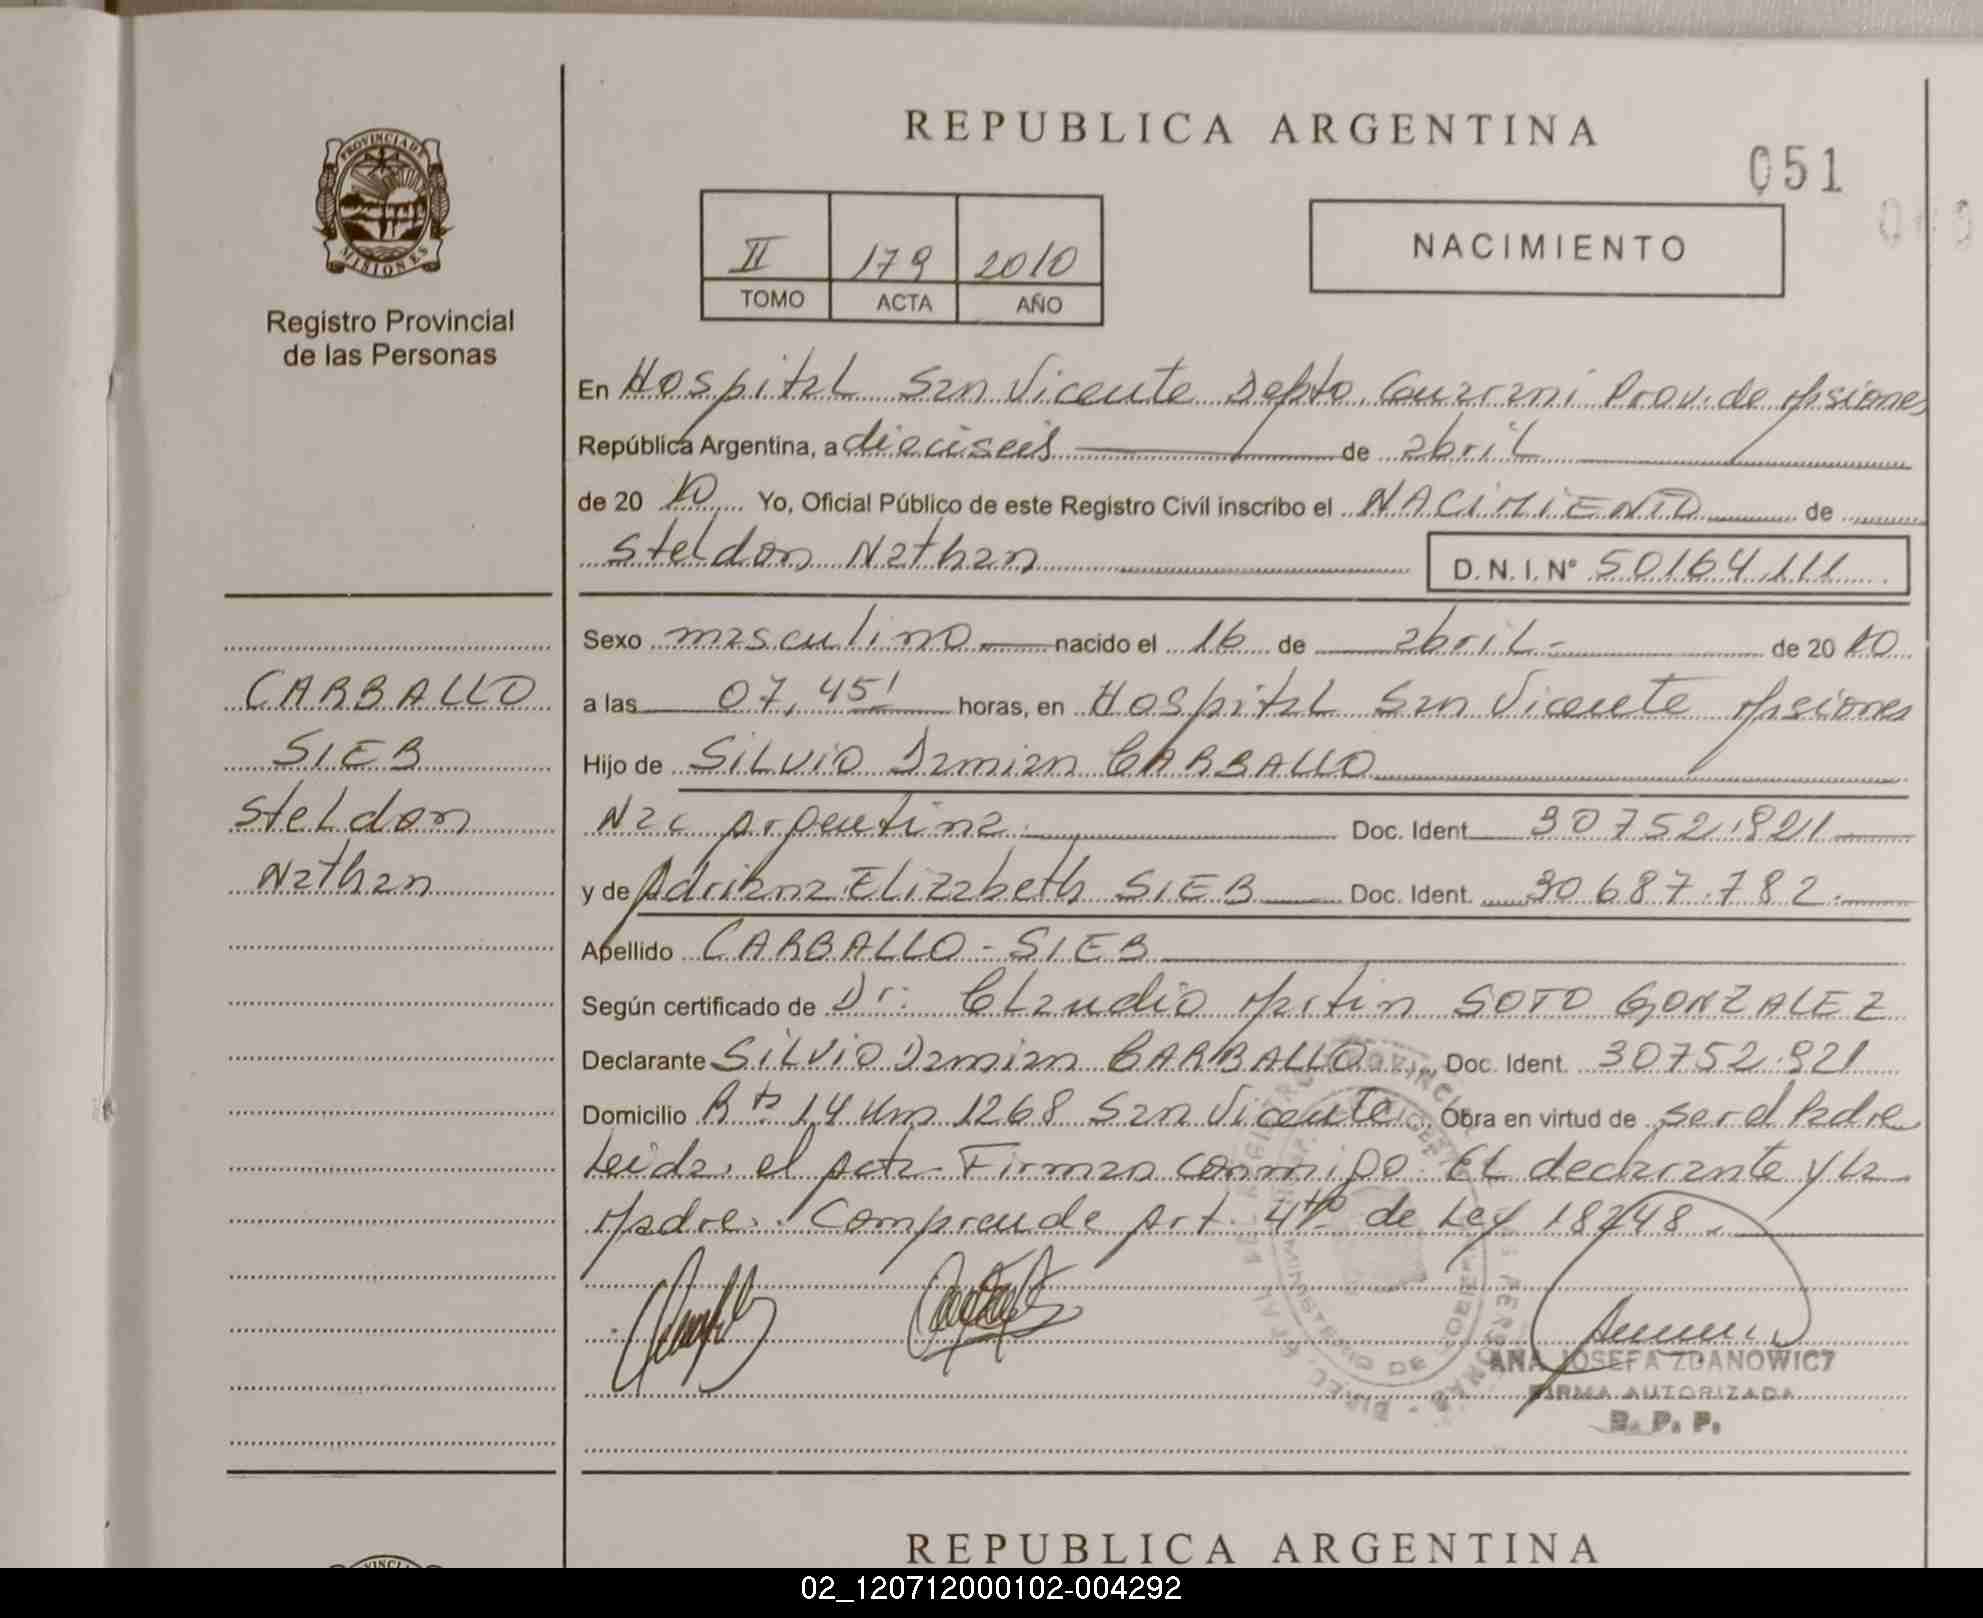 REPUBLICA ARGENTINA
051
PROVINCIA DE
MISIONES
Registro Provincial
de las Personas
II 179 2010
TOMO ACTA AÑO
NACIMIENTO
En Hospital San Vicente Depto. Guarani Prov. de Misiones
República Argentina, a dieciseis de abril
de 20 10 Yo, Oficial Público de este Registro Civil inscribo el NACIMIENTO de
Steldon Nathan D.N.I. N° 50164.111
Sexo masculino nacido el 16 de abril de 20 10
a las 07,45' horas, en Hospital San Vicente Misiones
Hijo de SILVIO Damian CARBALLO
Nac Argentina. Doc. Ident 30752.921
y de Adriana Elizabeth SIEB Doc. Ident. 30687.782.
Apellido CARBALLO-SIEB
Según certificado de Dr. Claudio Martin SOTO GONZALEZ
Declarante SILVIO Damian CARBALLO Doc. Ident. 30752.921
Domicilio Rta 14 Km 1268 San Vicente. Obra en virtud de ser el Padre
Leida el Acta. Firman conmigo El declarante y la
Madre. Comprende Art. 4to de Ley 18248.
CARBALLO
SIEB
Steldon
Nathan
ANA JOSEFA ZDANOWICZ
FIRMA AUTORIZADA
R. P. P.
REPUBLICA ARGENTINA
02_120712000102-004292